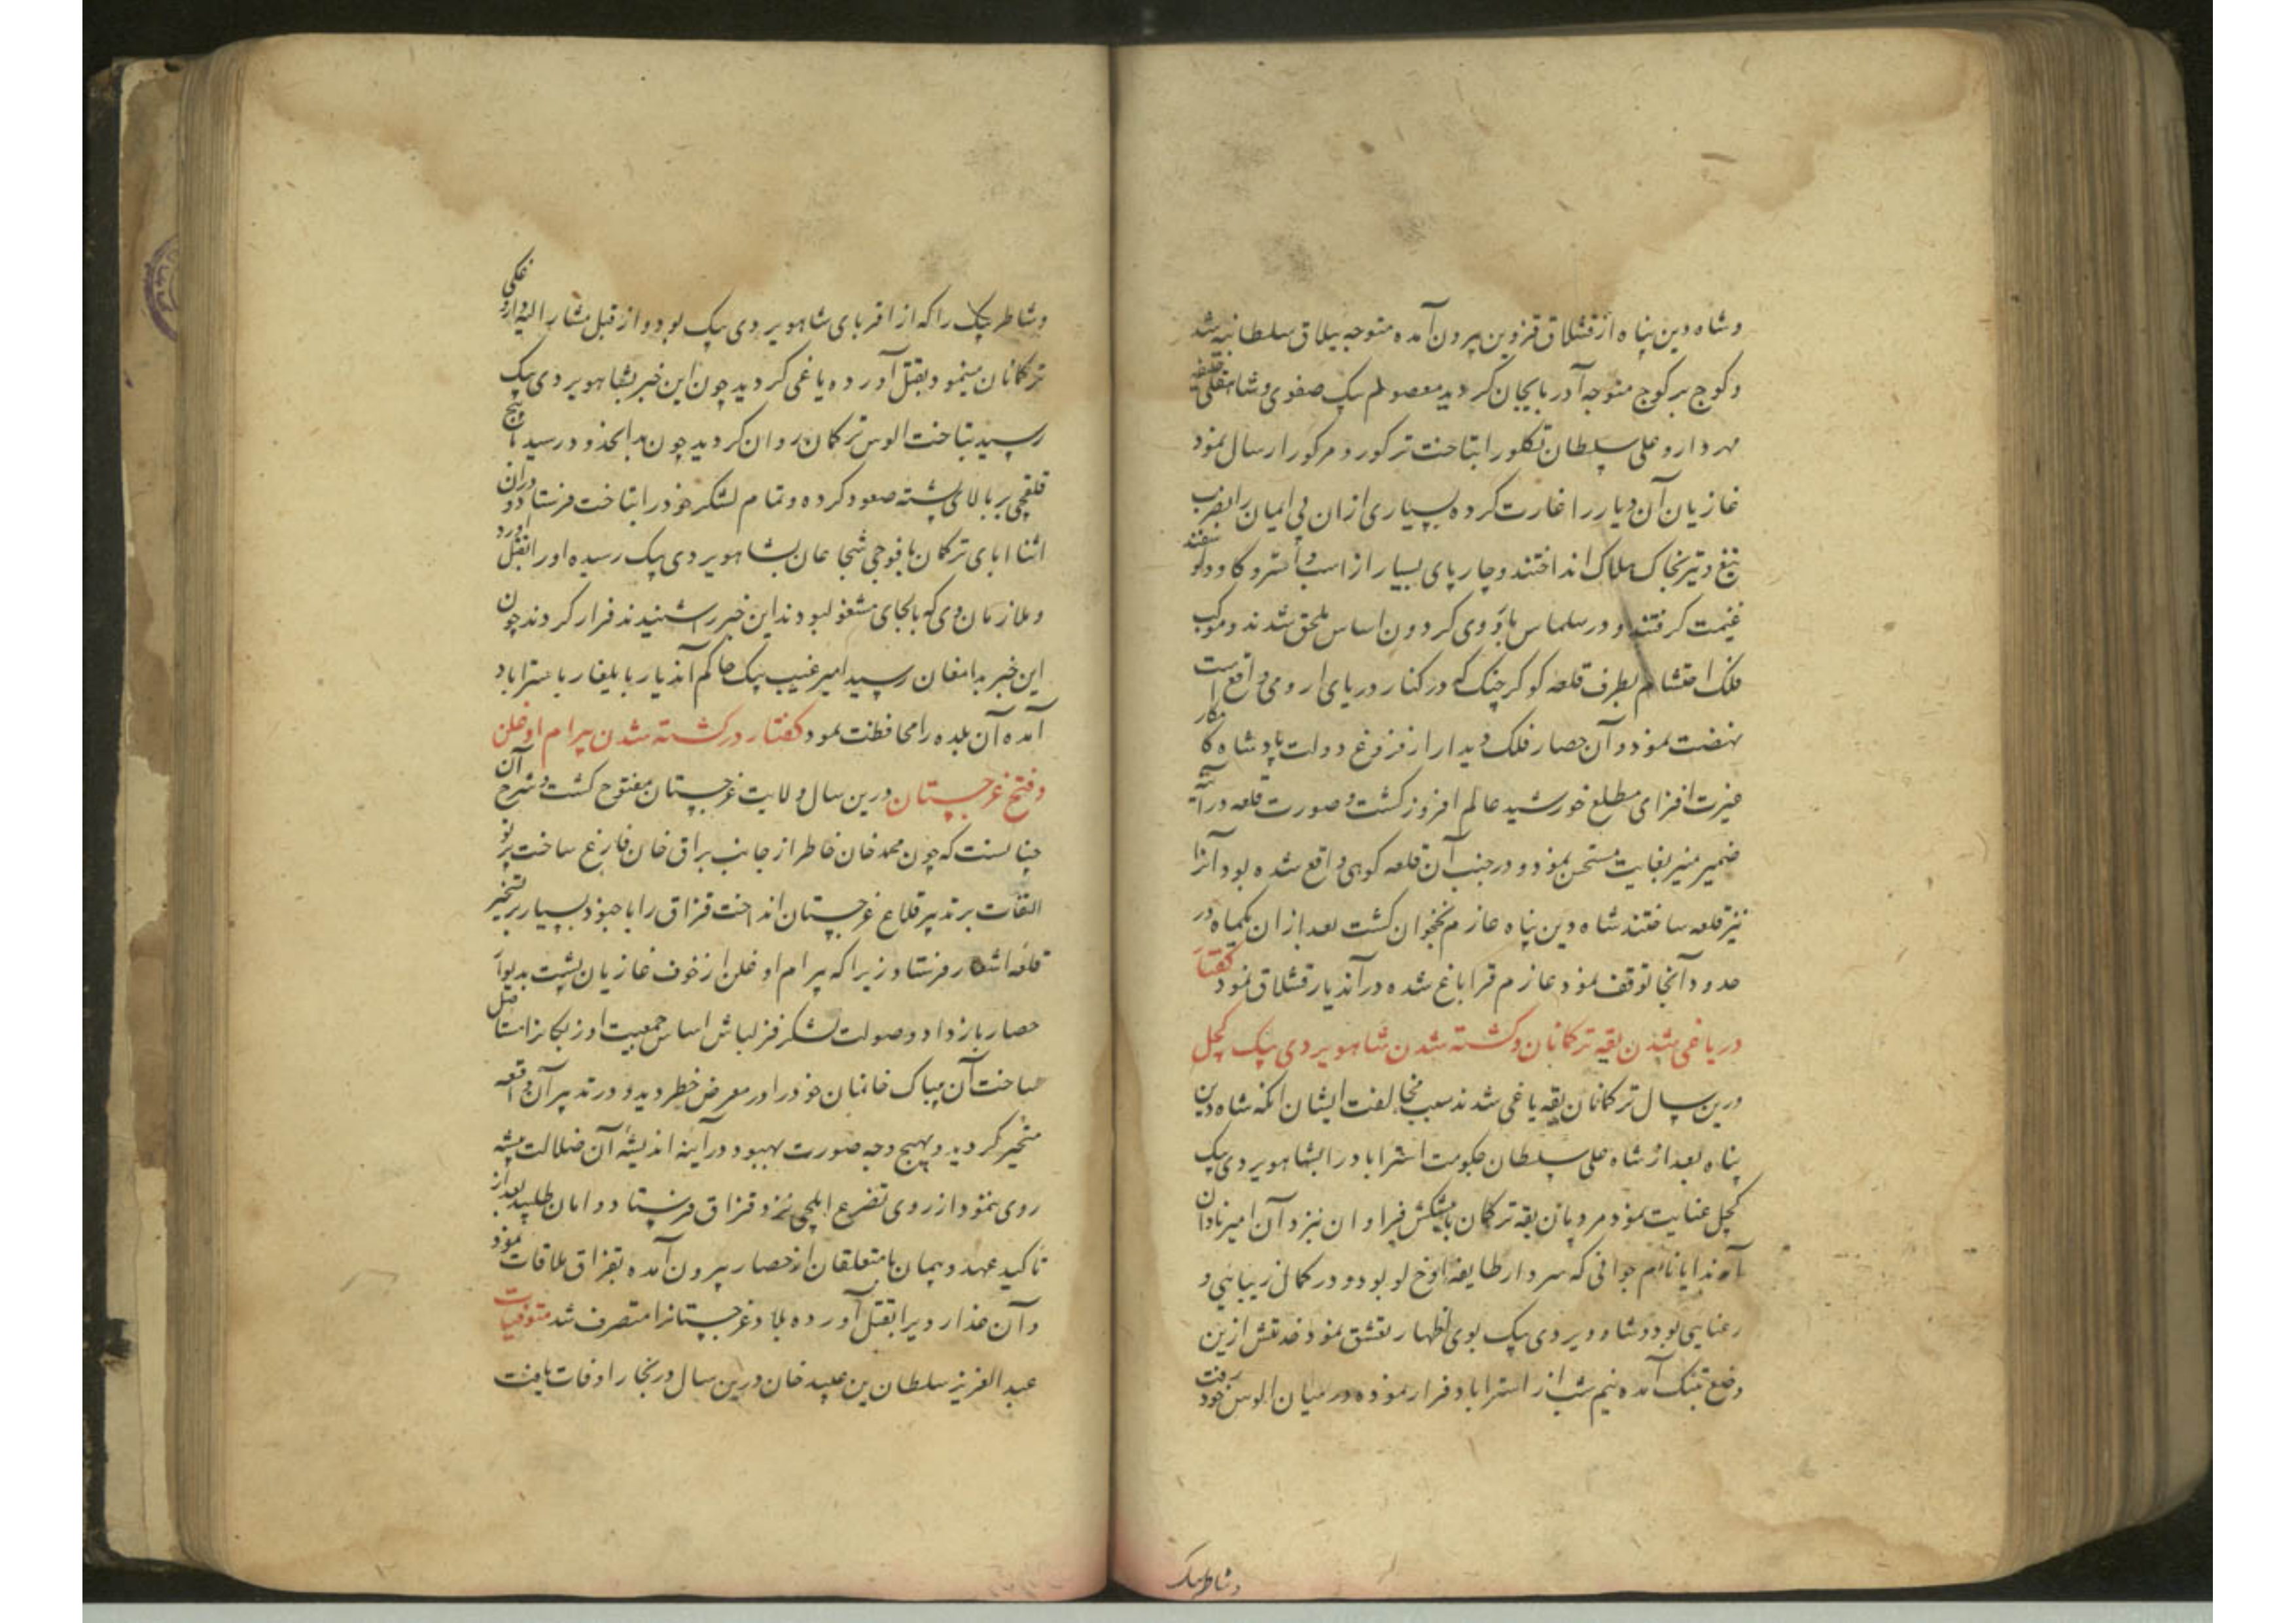 وشاه دین پناه از قشلاق قزوین بیرون آمده متوجه ییلاق سلطانیه شد
و کوچ بر کوچ متوجه آذربایجان کردید معصوم بیک صفوی و شاهقلی خلیفه
مهردار و علی سلطان تکلو را بتاخت ترکور و مرکور ارسال نمود
غازیان آن دیار را غارت کرده بسیاری ازان بی ایمان را بضرب
تیغ و تیر بخاک هلاک انداختند و چارپای بسیار از اسب و استر و کاو و کوسفند
غنیمت کرفتند و در سلماس باردوی کردون اساس ملحق شدند و موکب
فلک احتشام بطرف قلعه کوکرچنک که در کنار دریای ارومی واقع است
نهضت نمود و آن حصار فلک دیدار از فروغ دولت پادشاه کامکار
غیرت افزای مطلع خورشید عالم افروز کشت و صورت قلعه در آینه
ضمیر منیر بغایت مستحسن نمود و در جنب آن قلعه کوهی واقع شده بود آنرا
نیز قلعه ساختند شاه دین پناه عازم نخجوان کشت بعد ازان یکماه در
حدود آنجا توقف نمود عازم قراباغ شده در آندیار قشلاق نمود کفتار
در یاغی شدن یقه ترکانان و کشته شدن شاهویردی بیک کچل
درین سال ترکانان یقه یاغی شدند سبب مخالفت ایشان آنکه شاه دین
پناه بعد از شاه علی سلطان حکومت استراباد را بشاهویردی بیک
کچل عنایت نمود مردمان یقه ترکمان با پیشکش فراوان نزد آن امیر نادان
آمدند ابا نام جوانی که سردار طایفه اوخلو بود و در کمال زیبایی و
رعنایی بود و شاه ویردی بیک بوی اظهار تعشق نمود خدمتش ازین
وضع بتنک آمده نیم شب از استراباد فرار نموده در میان الوس خود رفت
وشاطر بیک
وشاطر بیک را که از اقربای شاهویردی بیک بود و از قبل مشار الیه داروغکی
ترکانان مینمود بقتل آورده یاغی کردید چون این خبر بشاهویردی بیک
رسید بتاخت الوس ترکمان روان کردید چون بدانحدود رسید با پنج
قلقچی بر بالای پشته صعود کرده و تمام لشکر خود را بتاخت فرستاد و دران
اثنا ابای ترکمان با فوجی شجاعان بشاهویردی بیک رسیده او را بقتل آورد
و ملازمان وی که بالجای مشغول بودند این خبر را شنیدند فرار کردند چون
این خبر بدامغان رسید امیر غیب بیک حاکم آندیار بایلغار باستراباد
آمده آن بلده را محافظت نمود کفتار در کشته شدن بیرام اوغلن
و فتح غرجستان درین سال ولایت غرجستان مفتوح کشت و شرح آن
چنانست که چون محمد خان خاطر از جانب براق خان فارغ ساخت پرتو
التفات بر تدبیر قلاع غرجستان انداخت قزاق را با جنود بسیار بر تسخیر
قلعه اشیار فرستاد زیرا که بیرام اوغلن از خوف غازیان پشت بدیوار
حصار باز داد و صولت لشکر قزلباش اساس جمعیت اوزبکانرا مستاصل
ساخت آن بیباک خانمان خود را در معرض خطر دید و در تدبیر آن واقعه
متحیر کردید و بهیچ وجه صورت بهبود در آینه اندیشه آن ضلالت پیشه
روی ننمود از روی تضرع ایلچی نزد قزاق فرستاد و امان طلبید بعد از
تاکید عهد و پیمان با متعلقان از حصار بیرون آمده بقزاق ملاقات نمود
و آن غدار ویرا بقتل آورده بلاد غرجستانرا متصرف شد متوفیات
عبد العزیز سلطان بن عبید خان درین سال در بخارا وفات یافت